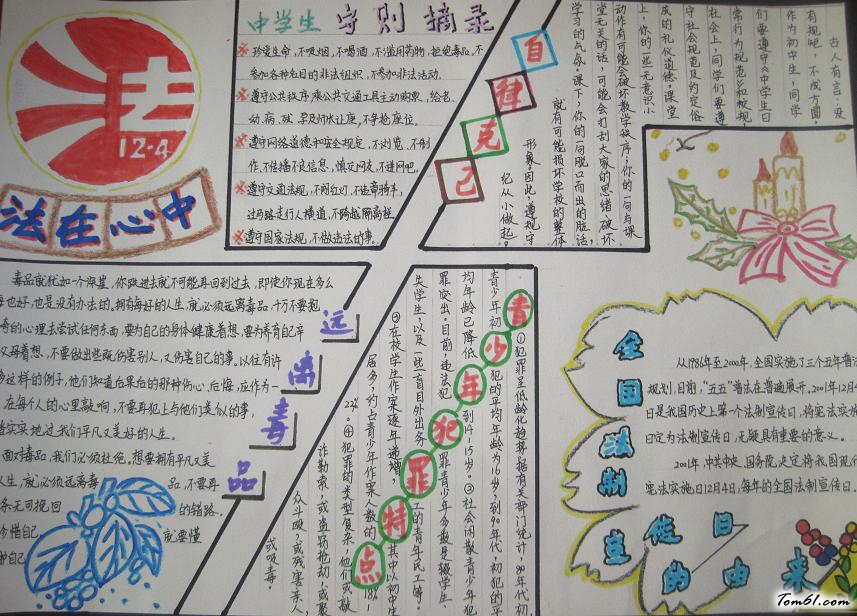 法
12·4
法在心中
中学生守则摘录
珍爱生命,不吸烟,不喝酒,不滥用药物,拒绝毒品。不
参加各种名目的非法组织,不参加非法活动。
遵守公共秩序,乘公共交通工具主动购票,给老、
幼、病、残、孕及师长让座,不争抢座位。
遵守网络道德和安全规定,不浏览、不制
作、不传播不良信息,慎交网友,不进网吧。
遵守交通法规,不闯红灯,不违章骑车,
过马路走人行横道,不跨越隔离栏。
遵守国家法规,不做违法的事。
自律克己
古人有言:没
有规矩,不成方圆。
作为初中生,同学
们要遵守《中学生日
常行为规范》和校规,
社会上,同学们要遵
守社会规范及约定俗
成的礼仪道德。课堂
上,你的一些无意识小
动作有可能会破坏教学秩序;你的一句与课
堂无关的话,可能会打乱大家的思绪,破坏
学习的气氛。课下,你的一句脱口而出的脏话,
就有可能损坏学校的整体
形象。因此,遵规守
纪从小做起。
远离毒品
毒品就犹如一个深渊,你跌进去就不可能再回到过去,即使你现在多么
也好,也是没有办法的。拥有每好的人生,就必须远离毒品,千万不要抱
奇的心理去尝试任何东西,要为自己的身体健康着想,要为养育自己辛
父母着想,不要做出些既伤害别人,又伤害自己的事。以往有许
多这样的例子,他们知道后果后的那种伤心、后悔,应作为一
在每个人的心里敲响,不要再犯上与他们类似的事,
实实地过我们平凡又美好的人生。
面对毒品,我们必须杜绝。想要拥有平凡又美
人生,就必须远离毒品,不要再
条无可挽回的错路。
惜自己,就要懂
自己
青少年犯罪特点
①犯罪呈低龄化趋势。据有关部门统计,80年代初,
青少年初犯的平均年龄为16岁,到90年代,初犯的平
均年龄已降低到14-15岁。②社会闲散青少年犯
罪突出。目前,违法犯罪青少年多数是辍学生、
失学生,以及一些盲目外出务工的青年民工等。
③在校学生作案逐年递增,其中以初中生
居多,约占青少年作案人数的18%-
22%。④犯罪的类型复杂,他们或敲
诈勒索,或盗窃抢劫,或聚
众斗殴,或残害亲人,
或吸毒。
全国法制宣传日的由来
从1986年至2000年,全国实施了三个五年普法
规划,目前,“五五”普法在普遍展开。2001年12月4
日是我国历史上第一个法制宣传日,将宪法实施
日定为法制宣传日,无疑具有重要的意义。
2001年,中共中央、国务院决定将我国现行
宪法实施日12月4日,每年的全国法制宣传日。
Tom61.com